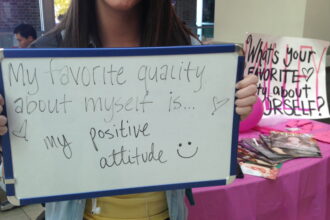 My favorite quality
about myself is...
my positive
attitude
What's your
FAVORITE
ty about
URSELF?